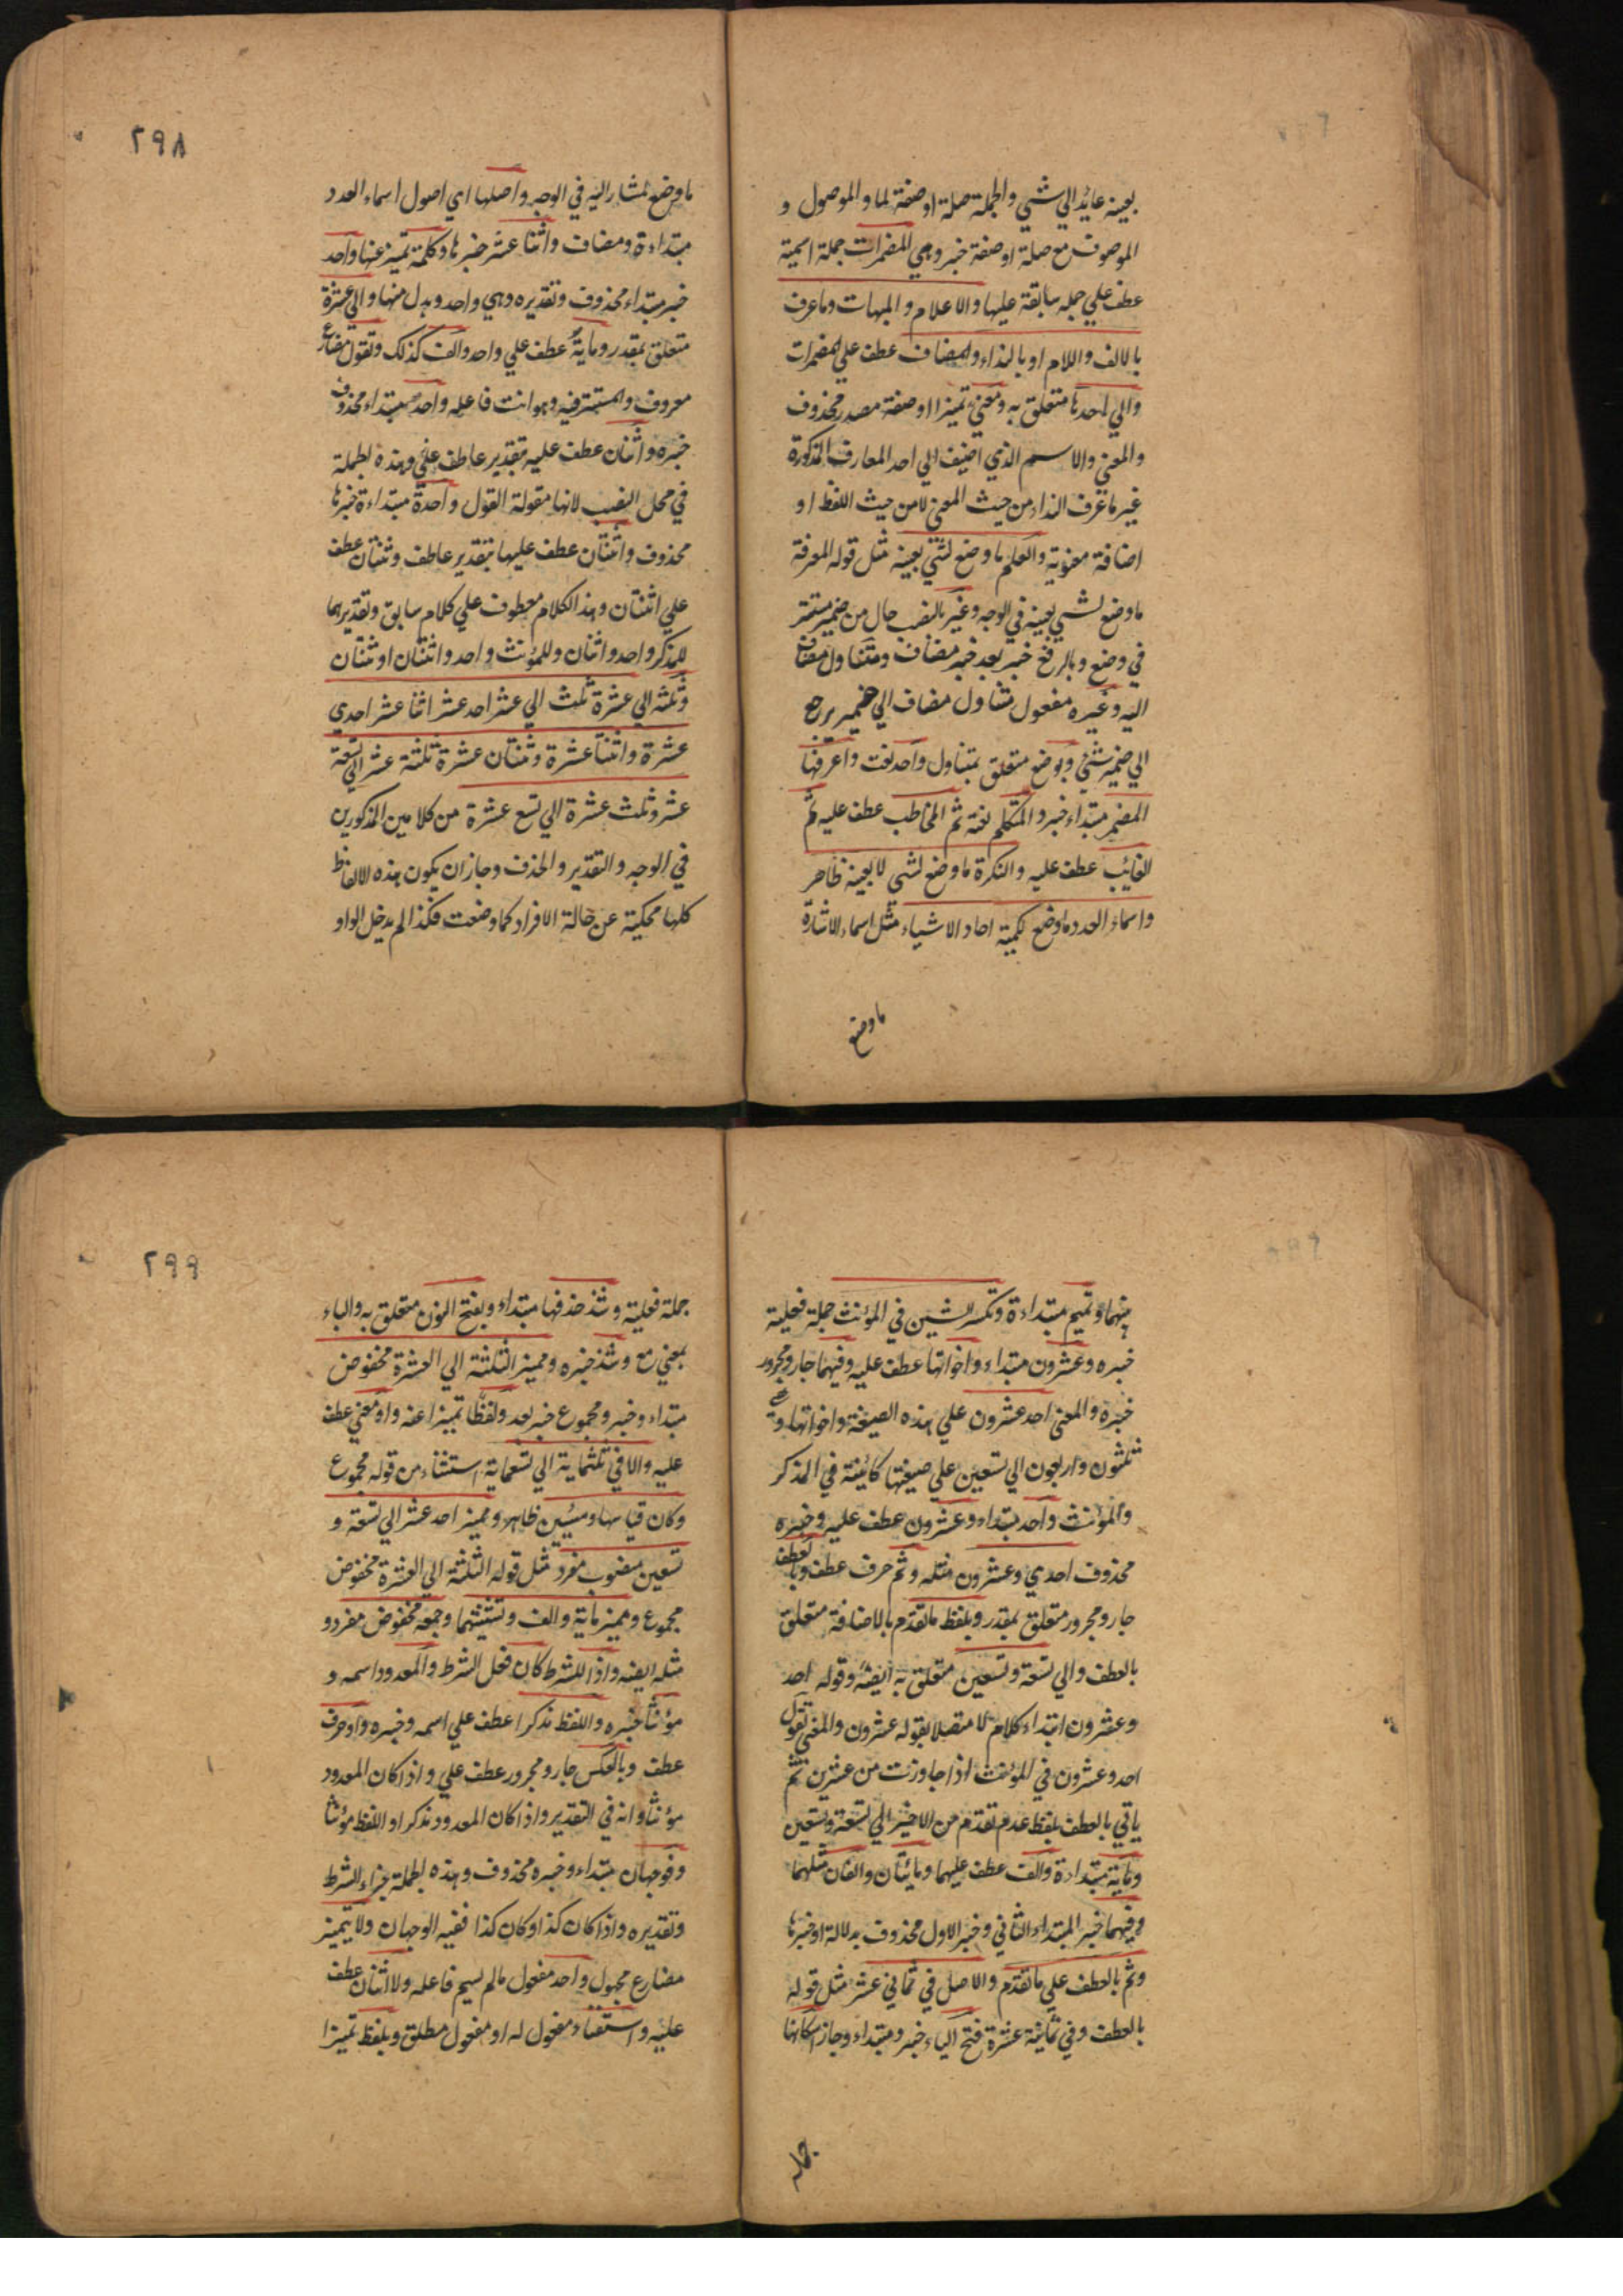 بعينه عائد الي شئي والجملة صلة او صفة لما والموصول و
الموصوف مع صلة او صفة خبر وهي المضمرات جملة اسمية
عطف علي جملة سابقة عليها والاعلام والمبهمات وما عرف
بالالف واللام او بالنداء والمضاف عطف علي المضمرات
والي احدها متعلق به ومعني تميزا او صفة مصدر محذوف
والمعني والاسم الذي اضيف الي احد المعارف المذكورة
غير ما عرف النداء من حيث المعني لا من حيث اللفظ او
اضافة معنوية والعلم ما وضع لشئي بعينه مثل قوله المعرفة
ما وضع لشئي بعينه في الوجه وغير بالنصب حال من ضمير مستتر
في وضع وبالرفع خبر بعد خبر مضاف ومتناول مضاف
اليه وغيره مفعول متناول مضاف الي ضمير يرجع
الي ضمير شئي وبوضع متعلق بمتناول واحد نعت واعرفها
المضمر مبتداء خبر والمتكلم نعته ثم المخاطب عطف عليه ثم
الغائب عطف عليه والنكرة ما وضع لشئي لا بعينه ظاهر
واسماء العدد ما وضع لكمية احاد الاشياء مثل اسماء الاشارة
ما وضع
٢٩٨
ما وضع لمشار اليه في الوجه واصلها اي اصول اسماء العدد
مبتداءة ومضاف واثنا عشر خبرها وكلمة تميز عنها واحد
خبر مبتداء محذوف وتقديره وهي واحد وبدل منها والي عشرة
متعلق بمقدر ومائة عطف علي واحد والف كذلك وتقول مضارع
معروف والمستتر فيه وهو انت فاعله واحد مبتداء محذوف
خبره واثنان عطف عليه بتقدير عاطف علي وهذه الجملة
في محل النصب لانها مقولة القول واحدة مبتداءة خبرها
محذوف واثنتان عطف عليها بتقدير عاطف وثنتان عطف
علي اثنتان وهذا الكلام معطوف علي كلام سابق وتقديرهما
للمذكر واحد واثنان وللمؤنث واحد واثنتان او ثنتان
وثلثه الي عشرة ثلث الي عشر احد عشر اثنا عشر احدي
عشرة واثنتا عشرة وثنتان عشرة ثلثة عشر الي تسعة
عشر وثلث عشرة الي تسع عشرة من كلامين المذكورين
في الوجه والتقدير والحذف وجاز ان يكون هذه الالفاظ
كلها محكية عن حالة الافراد كما وضعت فكذا لم يدخل الواو
بينهما وتميم مبتداءة وتكسر الشين في المؤنث جملة فعلية
خبره وعشرون مبتداء واخواتها عطف عليه وفيهما جار ومجرور
خبره والمعني احد عشرون علي هذه الصيغة واخواتها
ثلثون واربعون الي تسعين علي صيغتها كائنة في المذكر
والمؤنث واحد مبتداء وعشرون عطف عليه وخبره
محذوف احدي وعشرون مثله وثم حرف عطف وبالعطف
جار ومجرور متعلق بمقدر وبلفظ ما تقدم بالاضافة متعلق
بالعطف والي تسعة وتسعين متعلق به ايضه وقوله احد
وعشرون ابتداء كلام لا متصلا بقوله عشرون والمعني تقول
احد وعشرون في المؤنث اذا جاوزت من عشرين ثم
ياتي بالعطف بلفظ عدم تقدم من الاخير الي تسعة وتسعين
ومائة مبتداءة والف عطف عليهما ومائتان والفان مثلهما
وفيهما خبر المبتداء الثاني وخبر الاول محذوف بدلالة او خبرها
وثم بالعطف علي ما تقدم والاصل في ثماني عشر مثل قوله
بالعطف وفي ثمانية عشرة فتح الياء خبر ومبتداء وجاز اسكانها
جملة
٢٩٩
جملة فعلية وشذ حذفها مبتداء وبفتح النون متعلق به والباء
بمعني مع وشذ خبره ومميز الثلثة الي العشرة مخفوض
مبتداء وخبر ومجموع خبر بعد ولفظا تميزا عنه واو معني عطف
عليه والا في ثلثماية الي تسعماية استثناء من قوله مجموع
وكان قياسها ومئين ظاهر ومميز احد عشر الي تسعة و
تسعين منصوب مفرد مثل قوله الثلثة الي العشرة مخفوض
مجموع ومميز ماية والف وتثنيتهما وجمعه مخفوض مفرد و
مثله ايضه واذا للشرط كان فعل الشرط والمعدود اسمه و
مؤنثا خبره واللفظ مذكرا عطف علي اسمه وخبره واو حرف
عطف وبالعكس جار ومجرور عطف علي واذا كان المعدود
مؤنثا وانه في التقدير واذا كان المعدود مذكرا واللفظ مؤنثا
وفوجهان مبتداء وخبره محذوف وهذه الجملة جزاء الشرط
وتقديره واذا كان كذا وكان كذا ففيه الوجهان ولا يتميز
مضارع مجهول واحد مفعول مالم يسم فاعله ولا اثنان عطف
عليه واستغناء مفعول له او مفعول مطلق وبلفظ تميزا